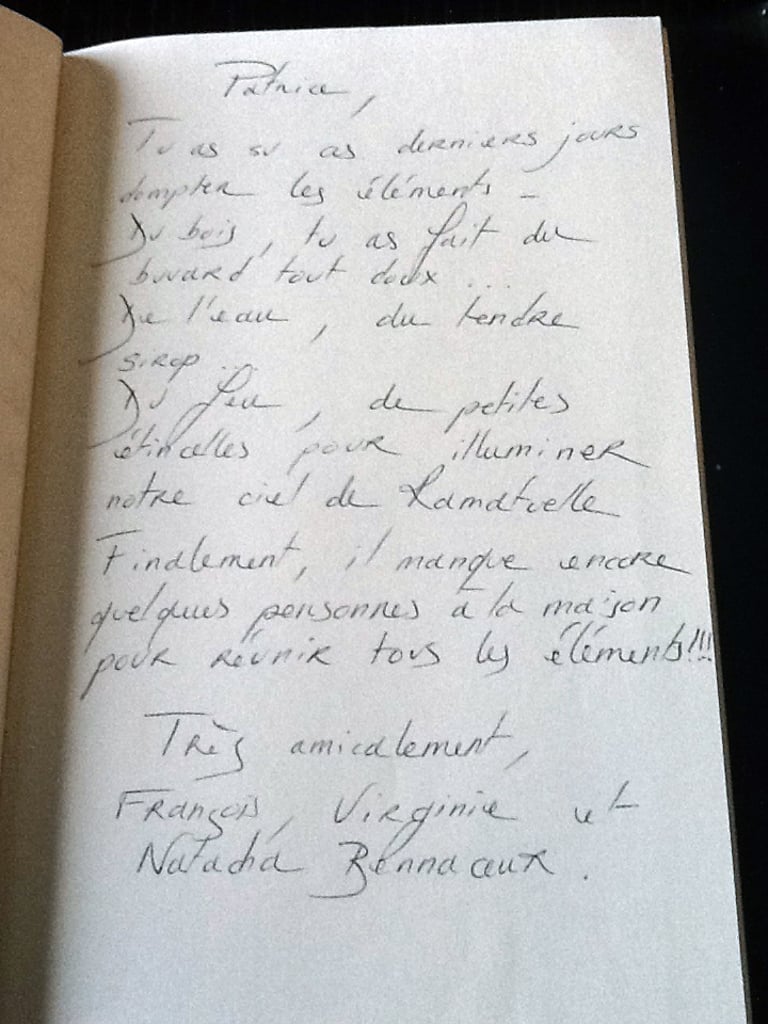 Patrice,
Tu as su ces derniers jours
dompter les éléments -
Du bois, tu as fait du
buvard tout doux ...
De l'eau, du tendre
sirop ...
Du feu, de petites
étincelles pour illuminer
notre ciel de Ramatuelle
Finalement, il manque encore
quelques personnes à la maison
pour réunir tous les éléments!!!
Très amicalement,
François, Virginie et
Natacha